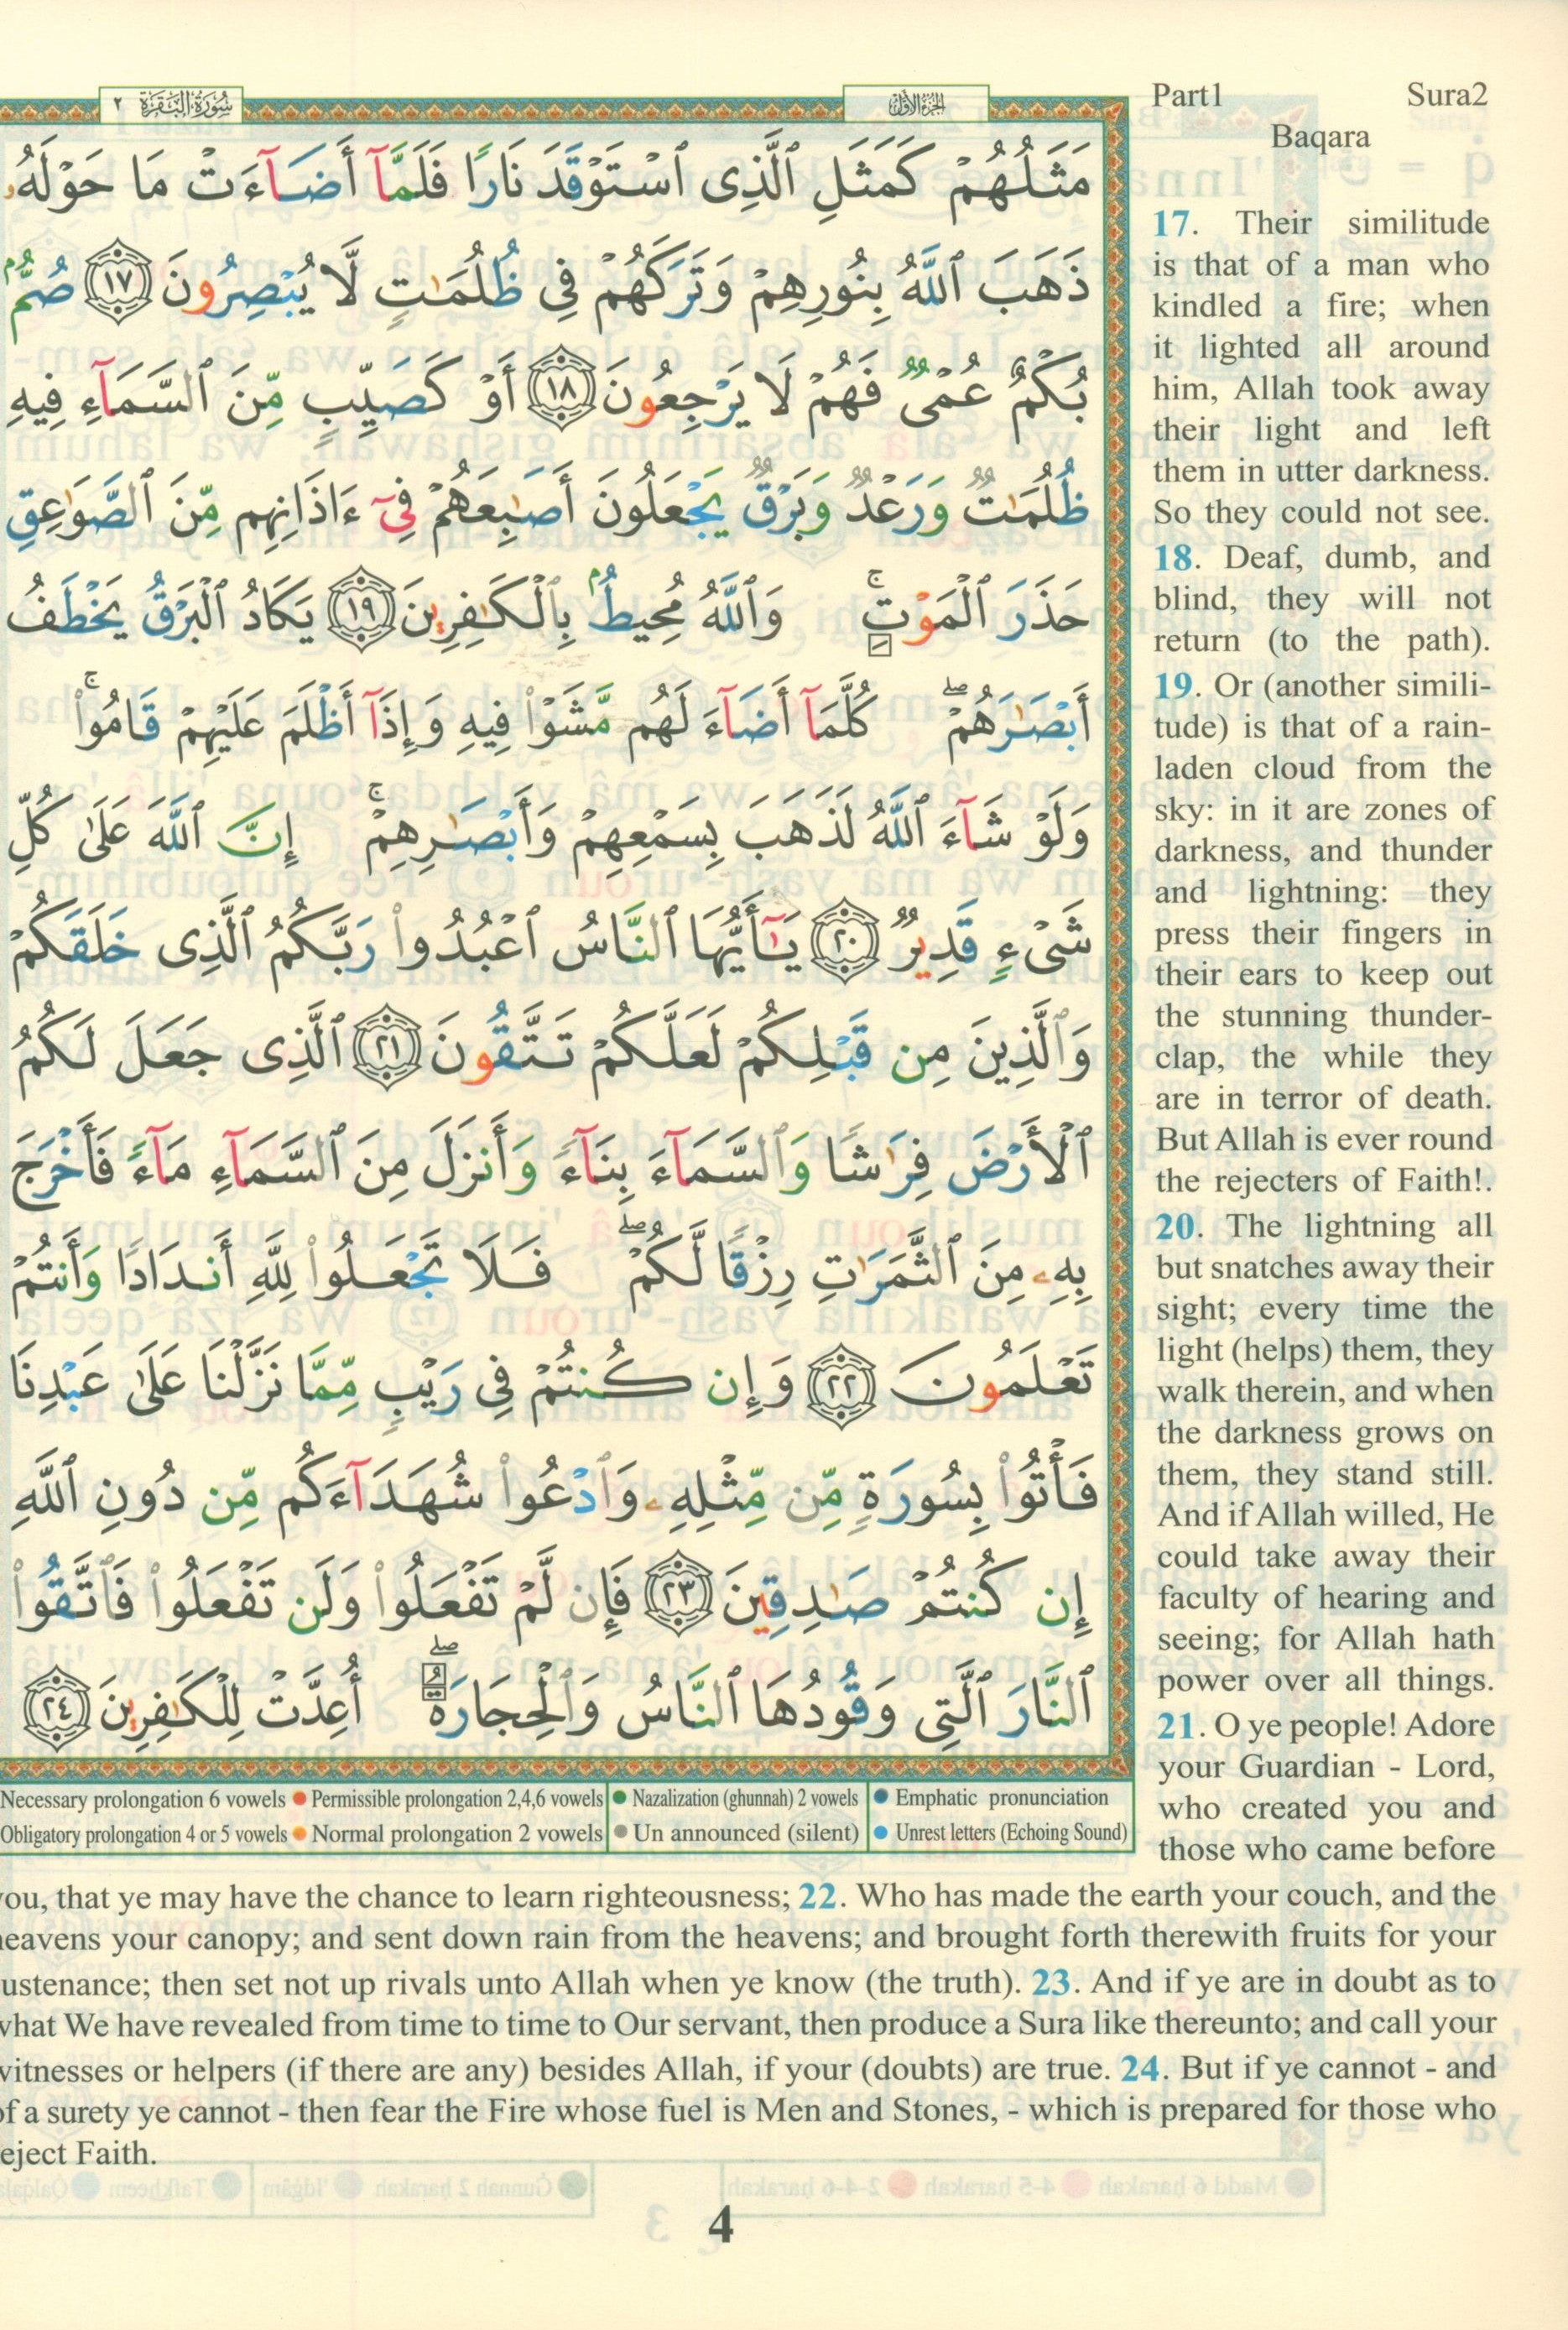 سُورَةُ البَقَرَة ٢
الجزء الأول
Part1 Sura2
Baqara
مَثَلُهُمْ كَمَثَلِ ٱلَّذِى ٱسْتَوْقَدَ نَارًا فَلَمَّآ أَضَآءَتْ مَا حَوْلَهُۥ
ذَهَبَ ٱللَّهُ بِنُورِهِمْ وَتَرَكَهُمْ فِى ظُلُمَـٰتٍ لَّا يُبْصِرُونَ ١٧ صُمٌّۢ
بُكْمٌ عُمْىٌ فَهُمْ لَا يَرْجِعُونَ ١٨ أَوْ كَصَيِّبٍ مِّنَ ٱلسَّمَآءِ فِيهِ
ظُلُمَـٰتٌ وَرَعْدٌ وَبَرْقٌ يَجْعَلُونَ أَصَـٰبِعَهُمْ فِىٓ ءَاذَانِهِم مِّنَ ٱلصَّوَٰعِقِ
حَذَرَ ٱلْمَوْتِ ۚ وَٱللَّهُ مُحِيطٌۢ بِٱلْكَـٰفِرِينَ ١٩ يَكَادُ ٱلْبَرْقُ يَخْطَفُ
أَبْصَـٰرَهُمْ ۖ كُلَّمَآ أَضَآءَ لَهُم مَّشَوْا۟ فِيهِ وَإِذَآ أَظْلَمَ عَلَيْهِمْ قَامُوا۟ ۚ
وَلَوْ شَآءَ ٱللَّهُ لَذَهَبَ بِسَمْعِهِمْ وَأَبْصَـٰرِهِمْ ۚ إِنَّ ٱللَّهَ عَلَىٰ كُلِّ
شَىْءٍ قَدِيرٌ ٢٠ يَـٰٓأَيُّهَا ٱلنَّاسُ ٱعْبُدُوا۟ رَبَّكُمُ ٱلَّذِى خَلَقَكُمْ
وَٱلَّذِينَ مِن قَبْلِكُمْ لَعَلَّكُمْ تَتَّقُونَ ٢١ ٱلَّذِى جَعَلَ لَكُمُ
ٱلْأَرْضَ فِرَٰشًا وَٱلسَّمَآءَ بِنَآءً وَأَنزَلَ مِنَ ٱلسَّمَآءِ مَآءً فَأَخْرَجَ
بِهِۦ مِنَ ٱلثَّمَرَٰتِ رِزْقًا لَّكُمْ ۖ فَلَا تَجْعَلُوا۟ لِلَّهِ أَندَادًا وَأَنتُمْ
تَعْلَمُونَ ٢٢ وَإِن كُنتُمْ فِى رَيْبٍ مِّمَّا نَزَّلْنَا عَلَىٰ عَبْدِنَا
فَأْتُوا۟ بِسُورَةٍ مِّن مِّثْلِهِۦ وَٱدْعُوا۟ شُهَدَآءَكُم مِّن دُونِ ٱللَّهِ
إِن كُنتُمْ صَـٰدِقِينَ ٢٣ فَإِن لَّمْ تَفْعَلُوا۟ وَلَن تَفْعَلُوا۟ فَٱتَّقُوا۟
ٱلنَّارَ ٱلَّتِى وَقُودُهَا ٱلنَّاسُ وَٱلْحِجَارَةُ ۖ أُعِدَّتْ لِلْكَـٰفِرِينَ ٢٤
Necessary prolongation 6 vowels ● Permissible prolongation 2,4,6 vowels ● Nazalization (ghunnah) 2 vowels ● Emphatic pronunciation
Obligatory prolongation 4 or 5 vowels ● Normal prolongation 2 vowels ● Un announced (silent) ● Unrest letters (Echoing Sound)
17. Their similitude
is that of a man who
kindled a fire; when
it lighted all around
him, Allah took away
their light and left
them in utter darkness.
So they could not see.
18. Deaf, dumb, and
blind, they will not
return (to the path).
19. Or (another simili-
tude) is that of a rain-
laden cloud from the
sky: in it are zones of
darkness, and thunder
and lightning: they
press their fingers in
their ears to keep out
the stunning thunder-
clap, the while they
are in terror of death.
But Allah is ever round
the rejecters of Faith!.
20. The lightning all
but snatches away their
sight; every time the
light (helps) them, they
walk therein, and when
the darkness grows on
them, they stand still.
And if Allah willed, He
could take away their
faculty of hearing and
seeing; for Allah hath
power over all things.
21. O ye people! Adore
your Guardian - Lord,
who created you and
those who came before
you, that ye may have the chance to learn righteousness; 22. Who has made the earth your couch, and the
heavens your canopy; and sent down rain from the heavens; and brought forth therewith fruits for your
ustenance; then set not up rivals unto Allah when ye know (the truth). 23. And if ye are in doubt as to
what We have revealed from time to time to Our servant, then produce a Sura like thereunto; and call your
witnesses or helpers (if there are any) besides Allah, if your (doubts) are true. 24. But if ye cannot - and
of a surety ye cannot - then fear the Fire whose fuel is Men and Stones, - which is prepared for those who
eject Faith.
4